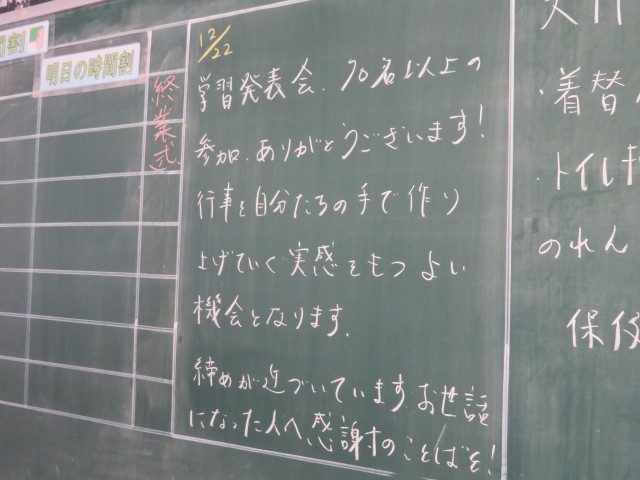 時間割
明日の時間割
終業式
12/22
学習発表会、70名以上の
参加、ありがとうございます!
行事を自分たちの手で作り
上げていく実感をもつよい
機会となります。
締めが近づいています。お世話
になった人へ感謝のことばを!
・着替
・トイレ
のれん
保